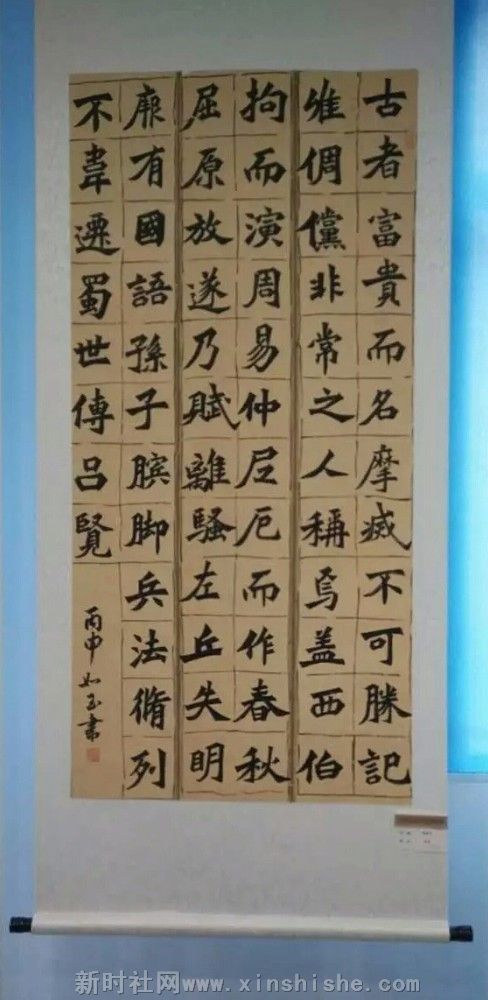 古者富貴而名摩滅不可勝記
唯倜儻非常之人稱焉蓋西伯
拘而演周易仲尼厄而作春秋
屈原放逐乃賦離騷左丘失明
厥有國語孫子臏脚兵法脩列
不韋遷蜀世傳呂覽
丙申如玉書
新时社网www.xinshishe.com